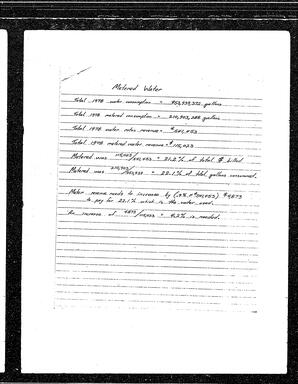 Metered Water
Total 1978 water consumption = 953,939,372 gallons
Total 1978 metered consumption = 210,903,288 gallons
Total 1978 water sales revenue = $541,053
Total 1978 metered water revenue = $115,023
Metered was 115,023/541,053 = 21.2% of total $ billed
Metered was 210,903/953,939 = 22.1% of total gallons consumed.
Meter revenue needs to increase by (.9% × $541,053) $4873
to pay for 22.1% which is the water used.
An increase of 4873/115,023 = 4.2% is needed.